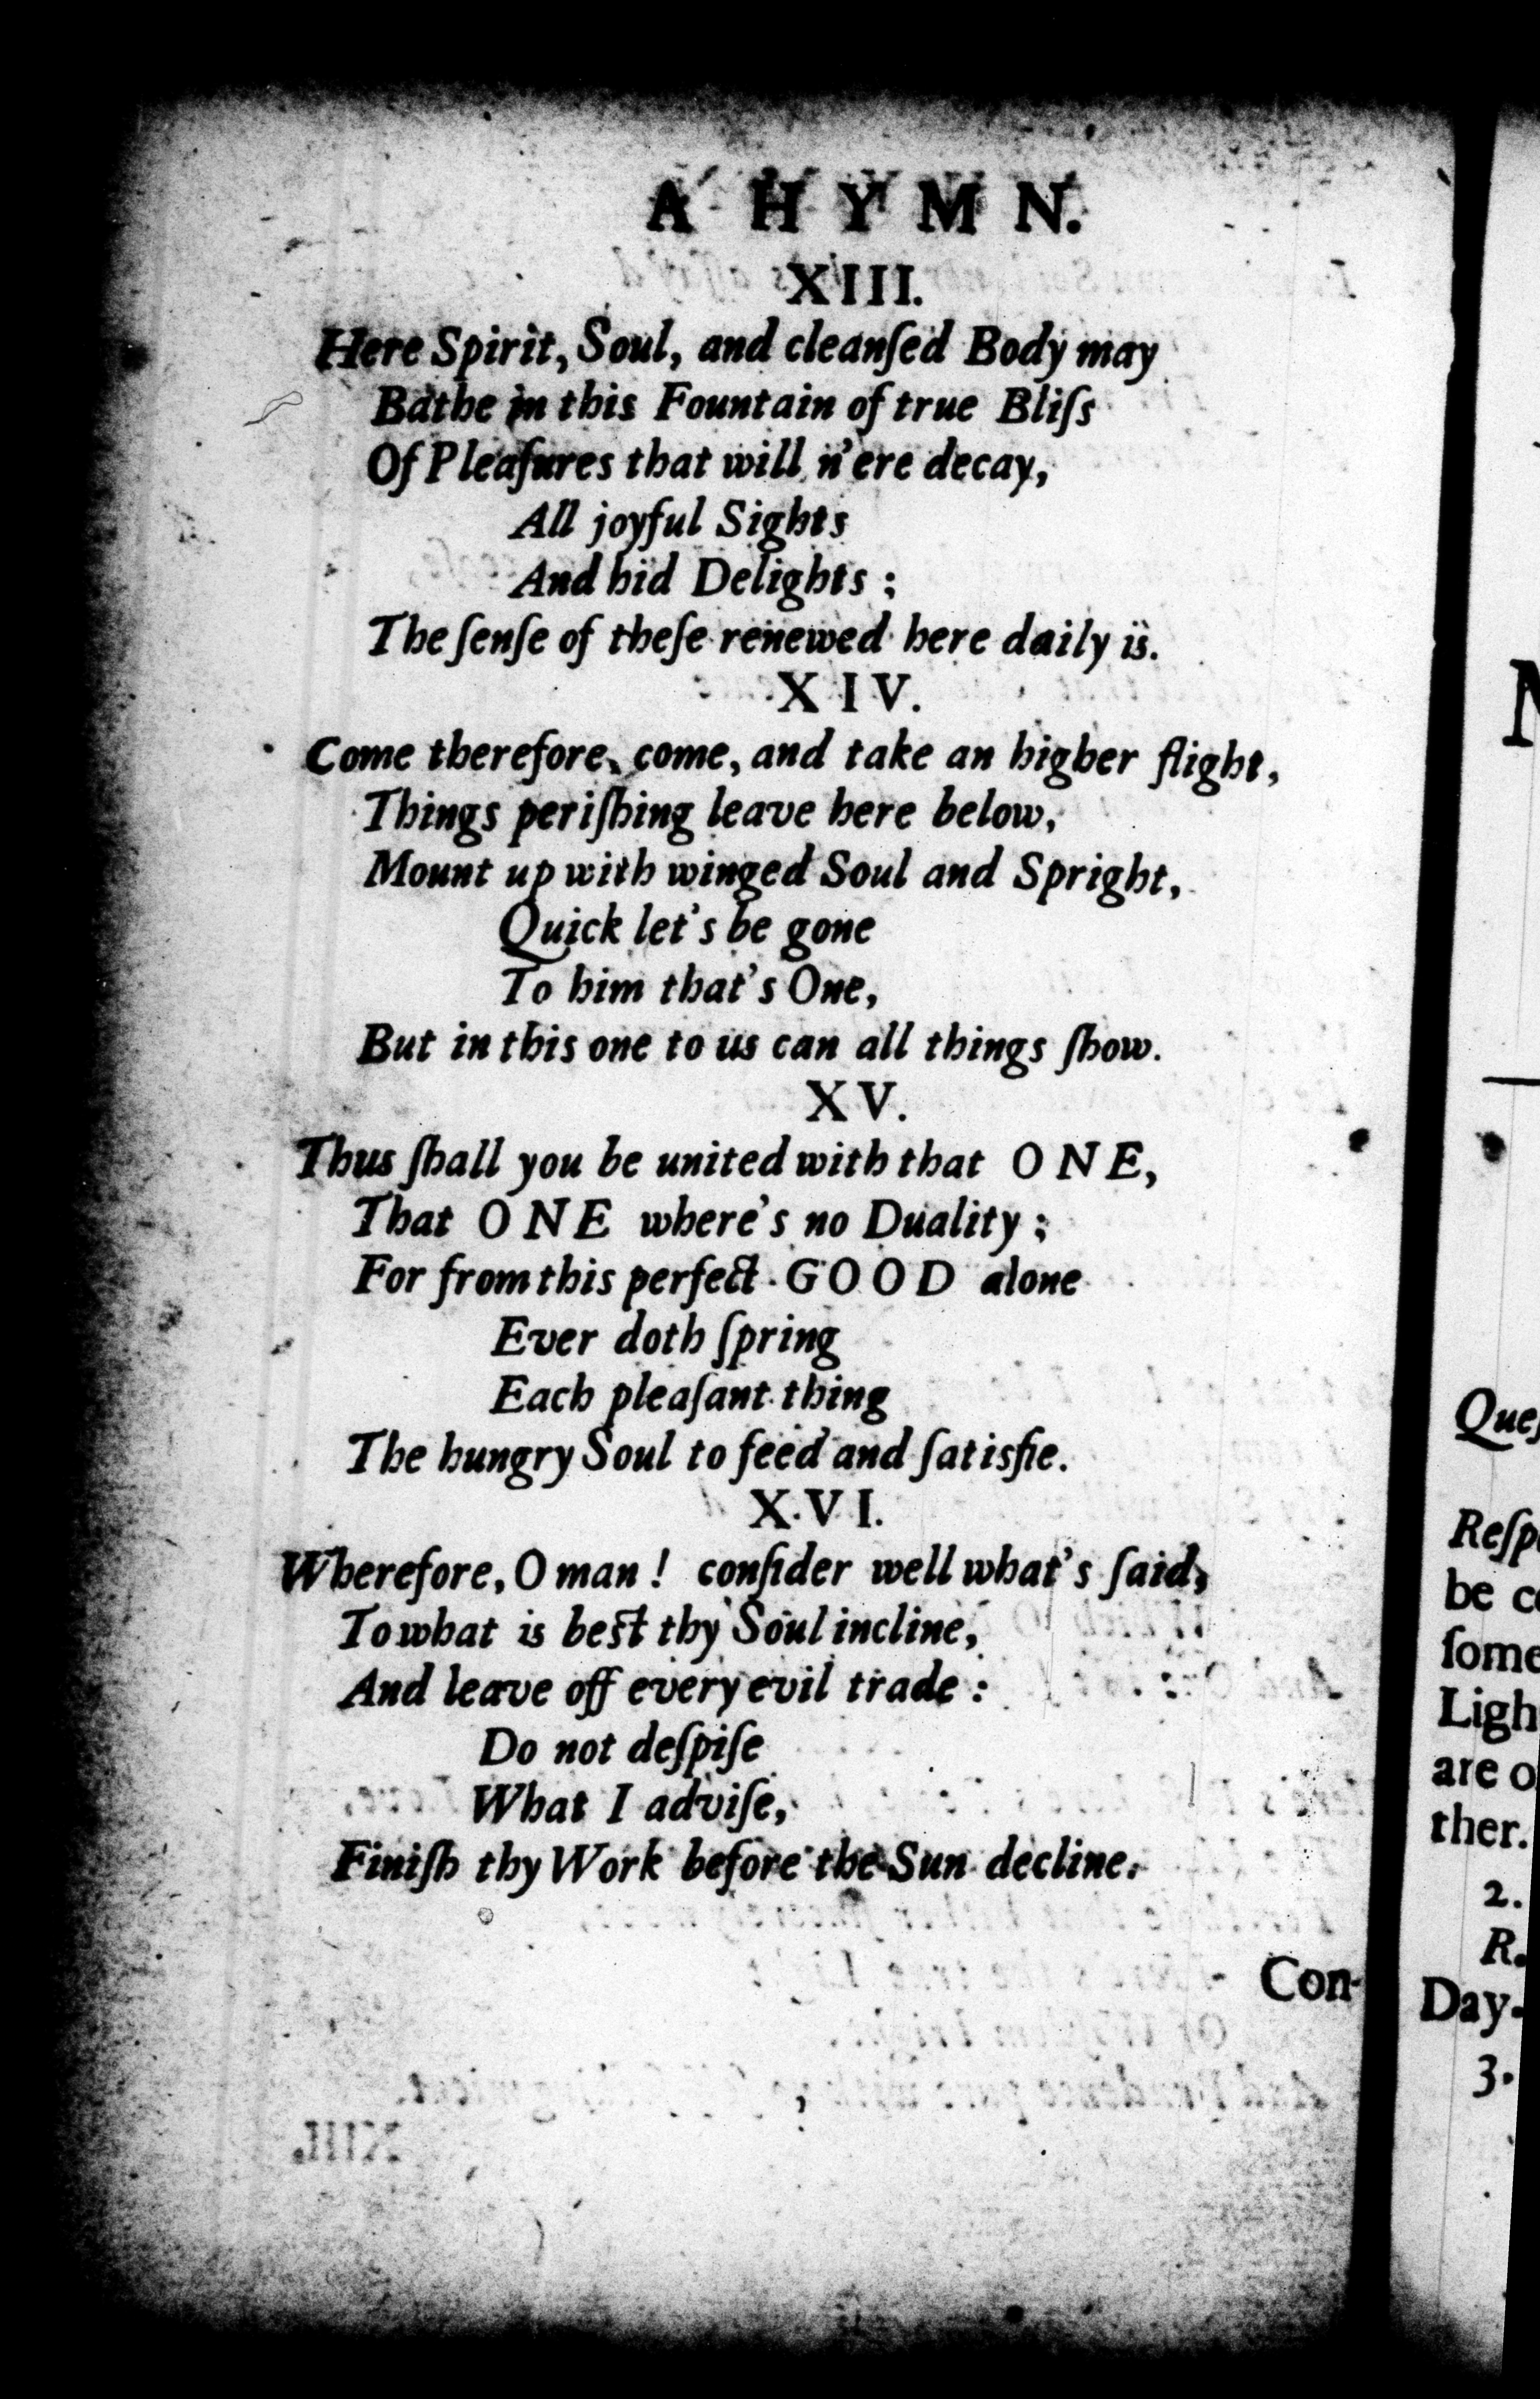 A HYMN.
XIII.
Here Spirit, Soul, and cleanſed Body may
Bathe in this Fountain of true Bliſs
Of Pleaſures that will n'ere decay,
All joyful Sights
And hid Delights ;
The ſenſe of theſe renewed here daily is.
XIV.
Come therefore, come, and take an higher flight,
Things periſhing leave here below,
Mount up with winged Soul and Spright,
Quick let's be gone
To him that's One,
But in this one to us can all things ſhow.
XV.
Thus ſhall you be united with that ONE,
That ONE where's no Duality ;
For from this perfect GOOD alone
Ever doth ſpring
Each pleaſant thing
The hungry Soul to feed and ſatisfie.
XVI.
Wherefore, O man ! conſider well what's ſaid,
To what is beſt thy Soul incline,
And leave off every evil trade :
Do not deſpiſe
What I adviſe,
Finiſh thy Work before the Sun decline.
Con-
be
are
ther.
2.
R.
Day-
3.